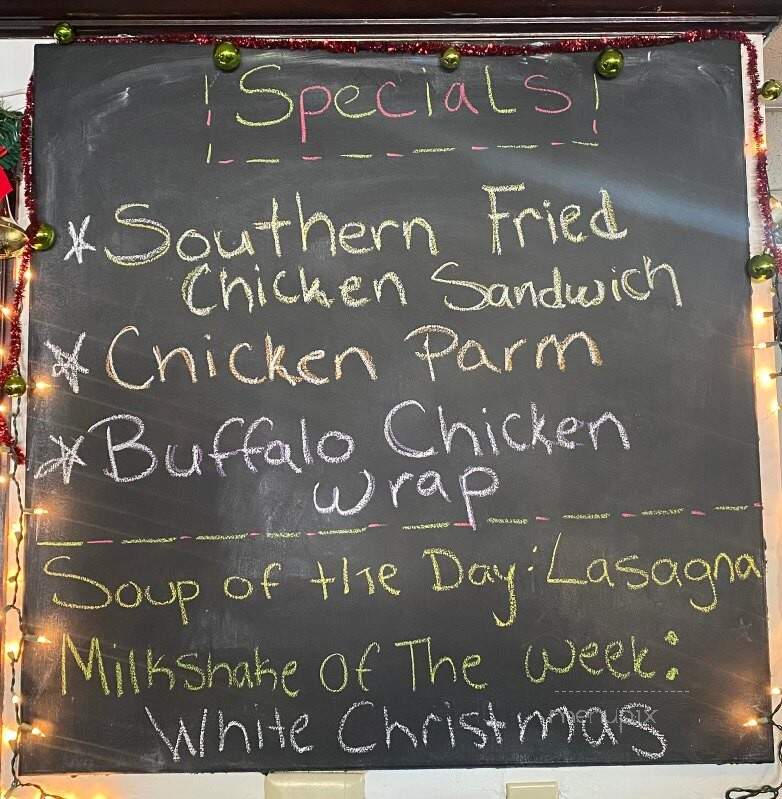 Specials
* Southern Fried
Chicken Sandwich
* Chicken Parm
* Buffalo Chicken
wrap
Soup of the Day: Lasagna
Milkshake Of The week:
White Christmas
menupix